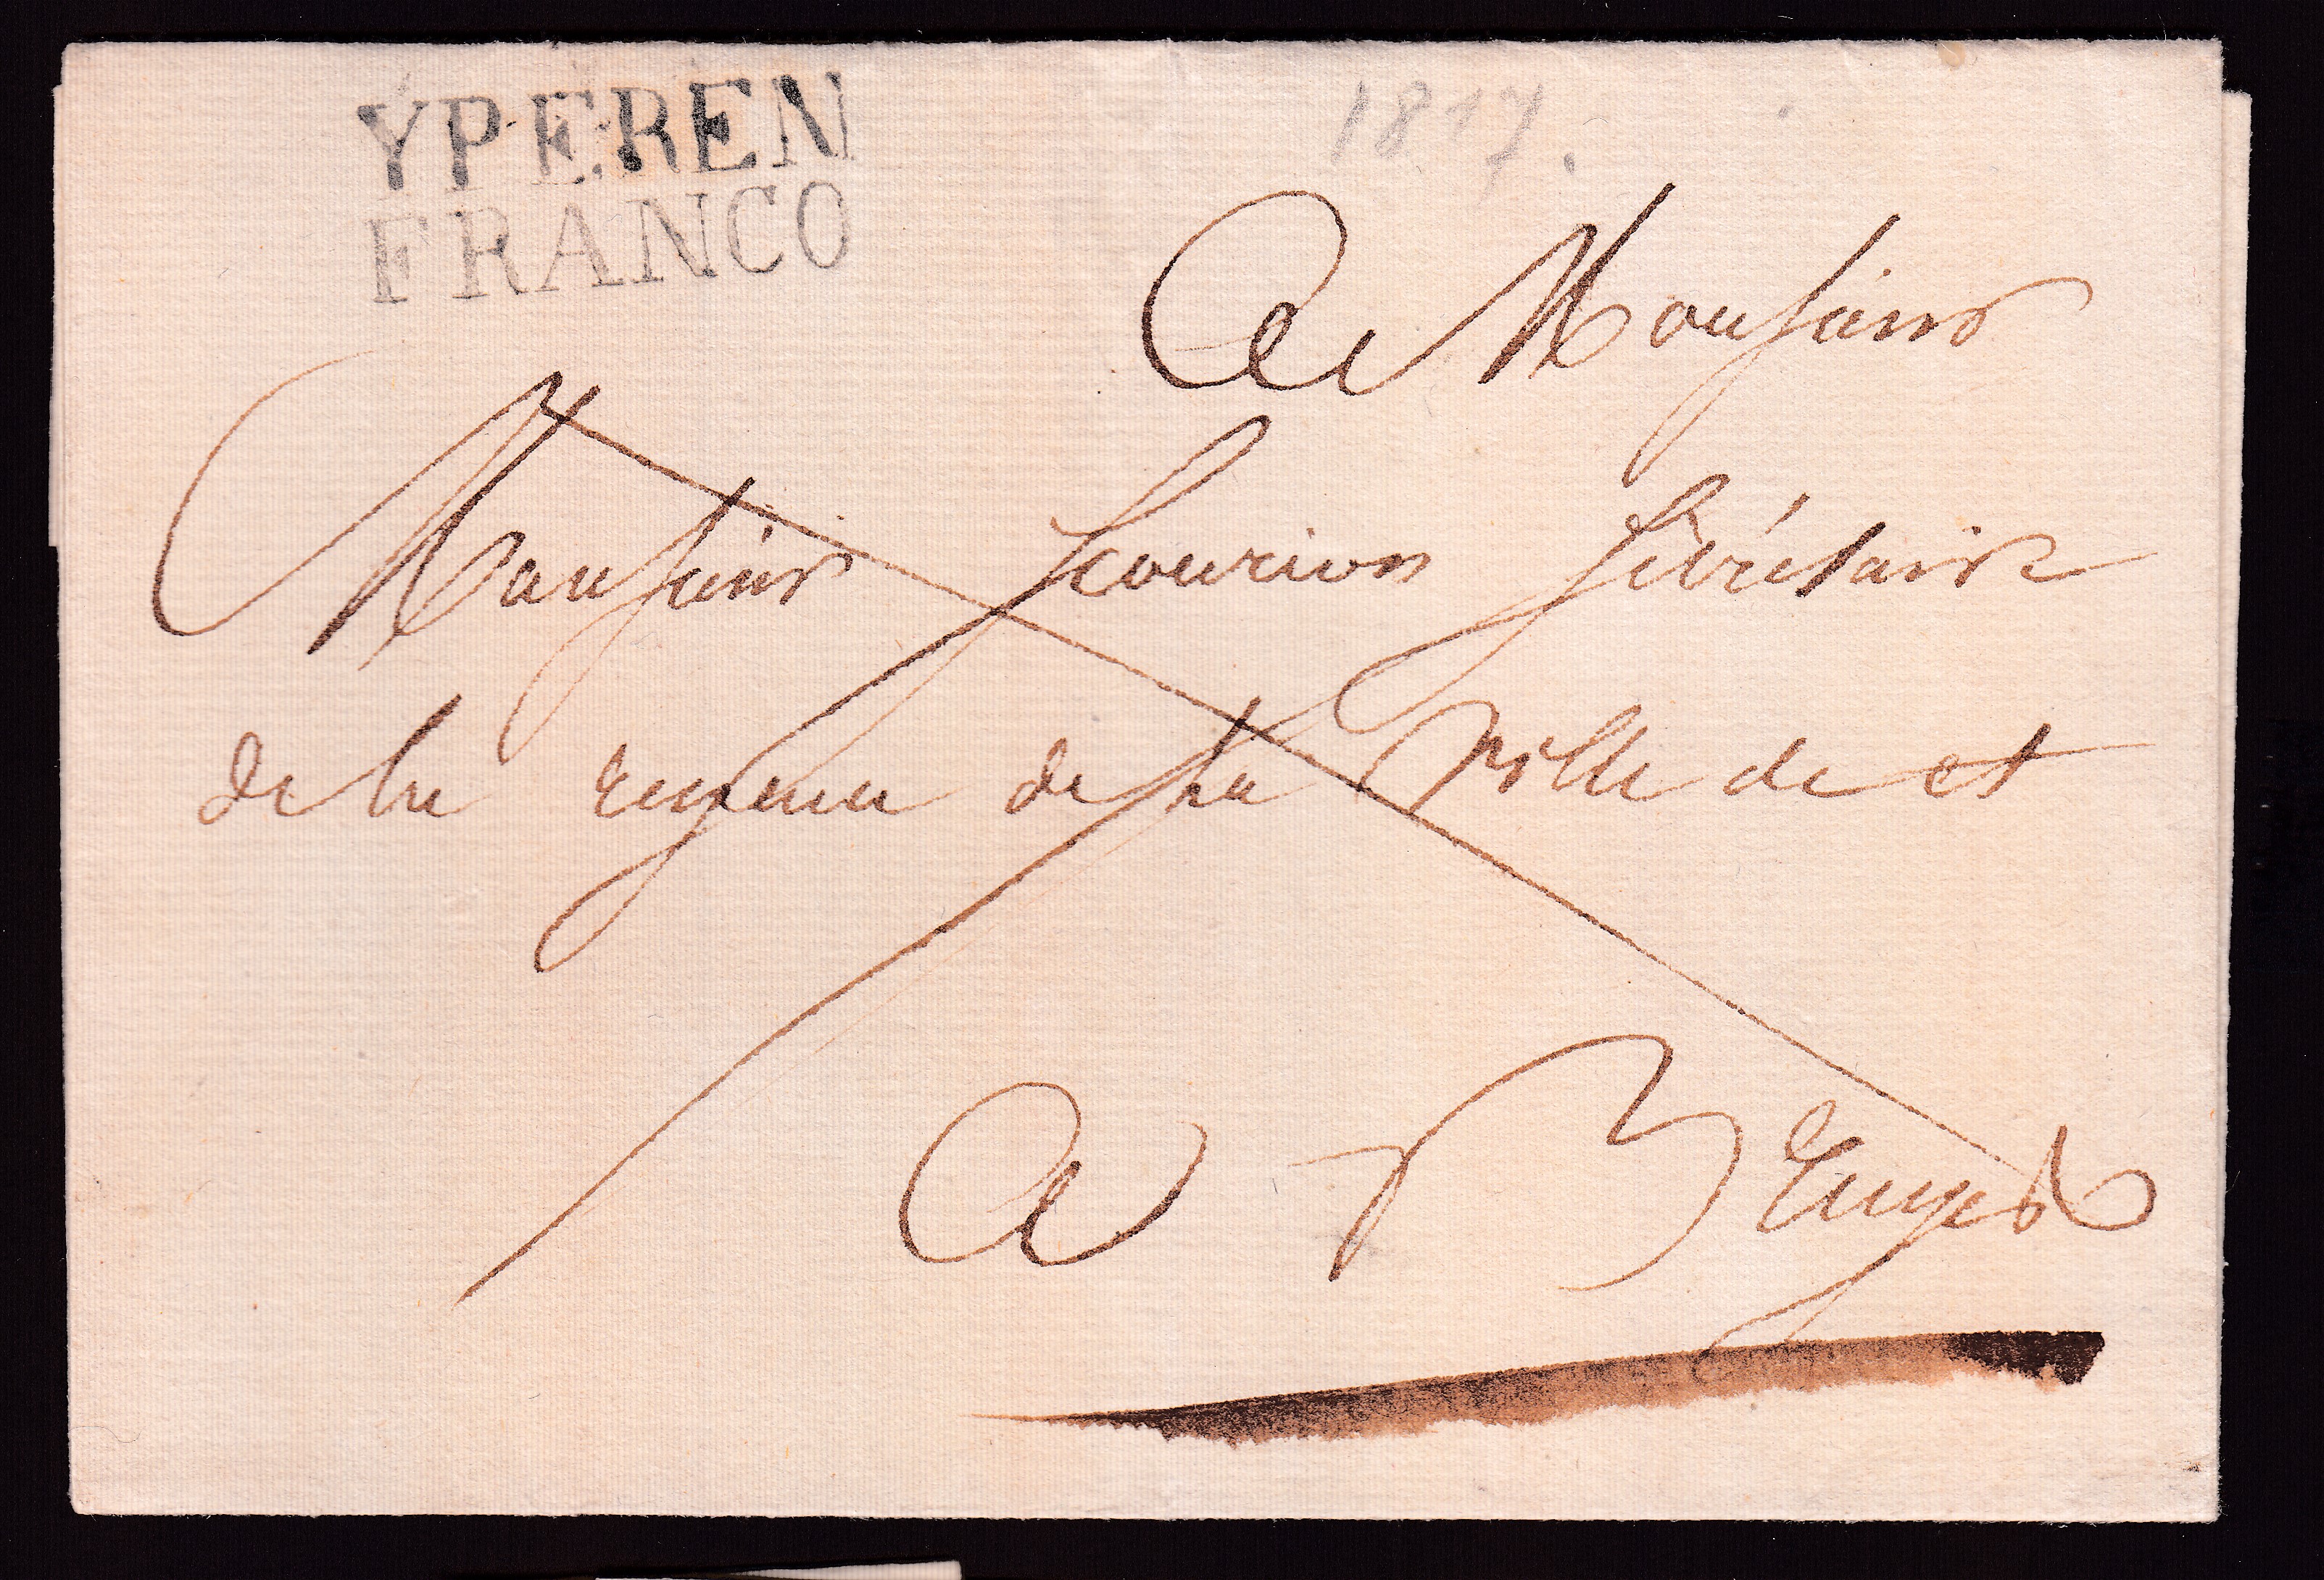 YPEREN
FRANCO
1817.
A Monsieur
Monsieur Scourion Secrétaire
de la regence de la Ville de et
A Bruges